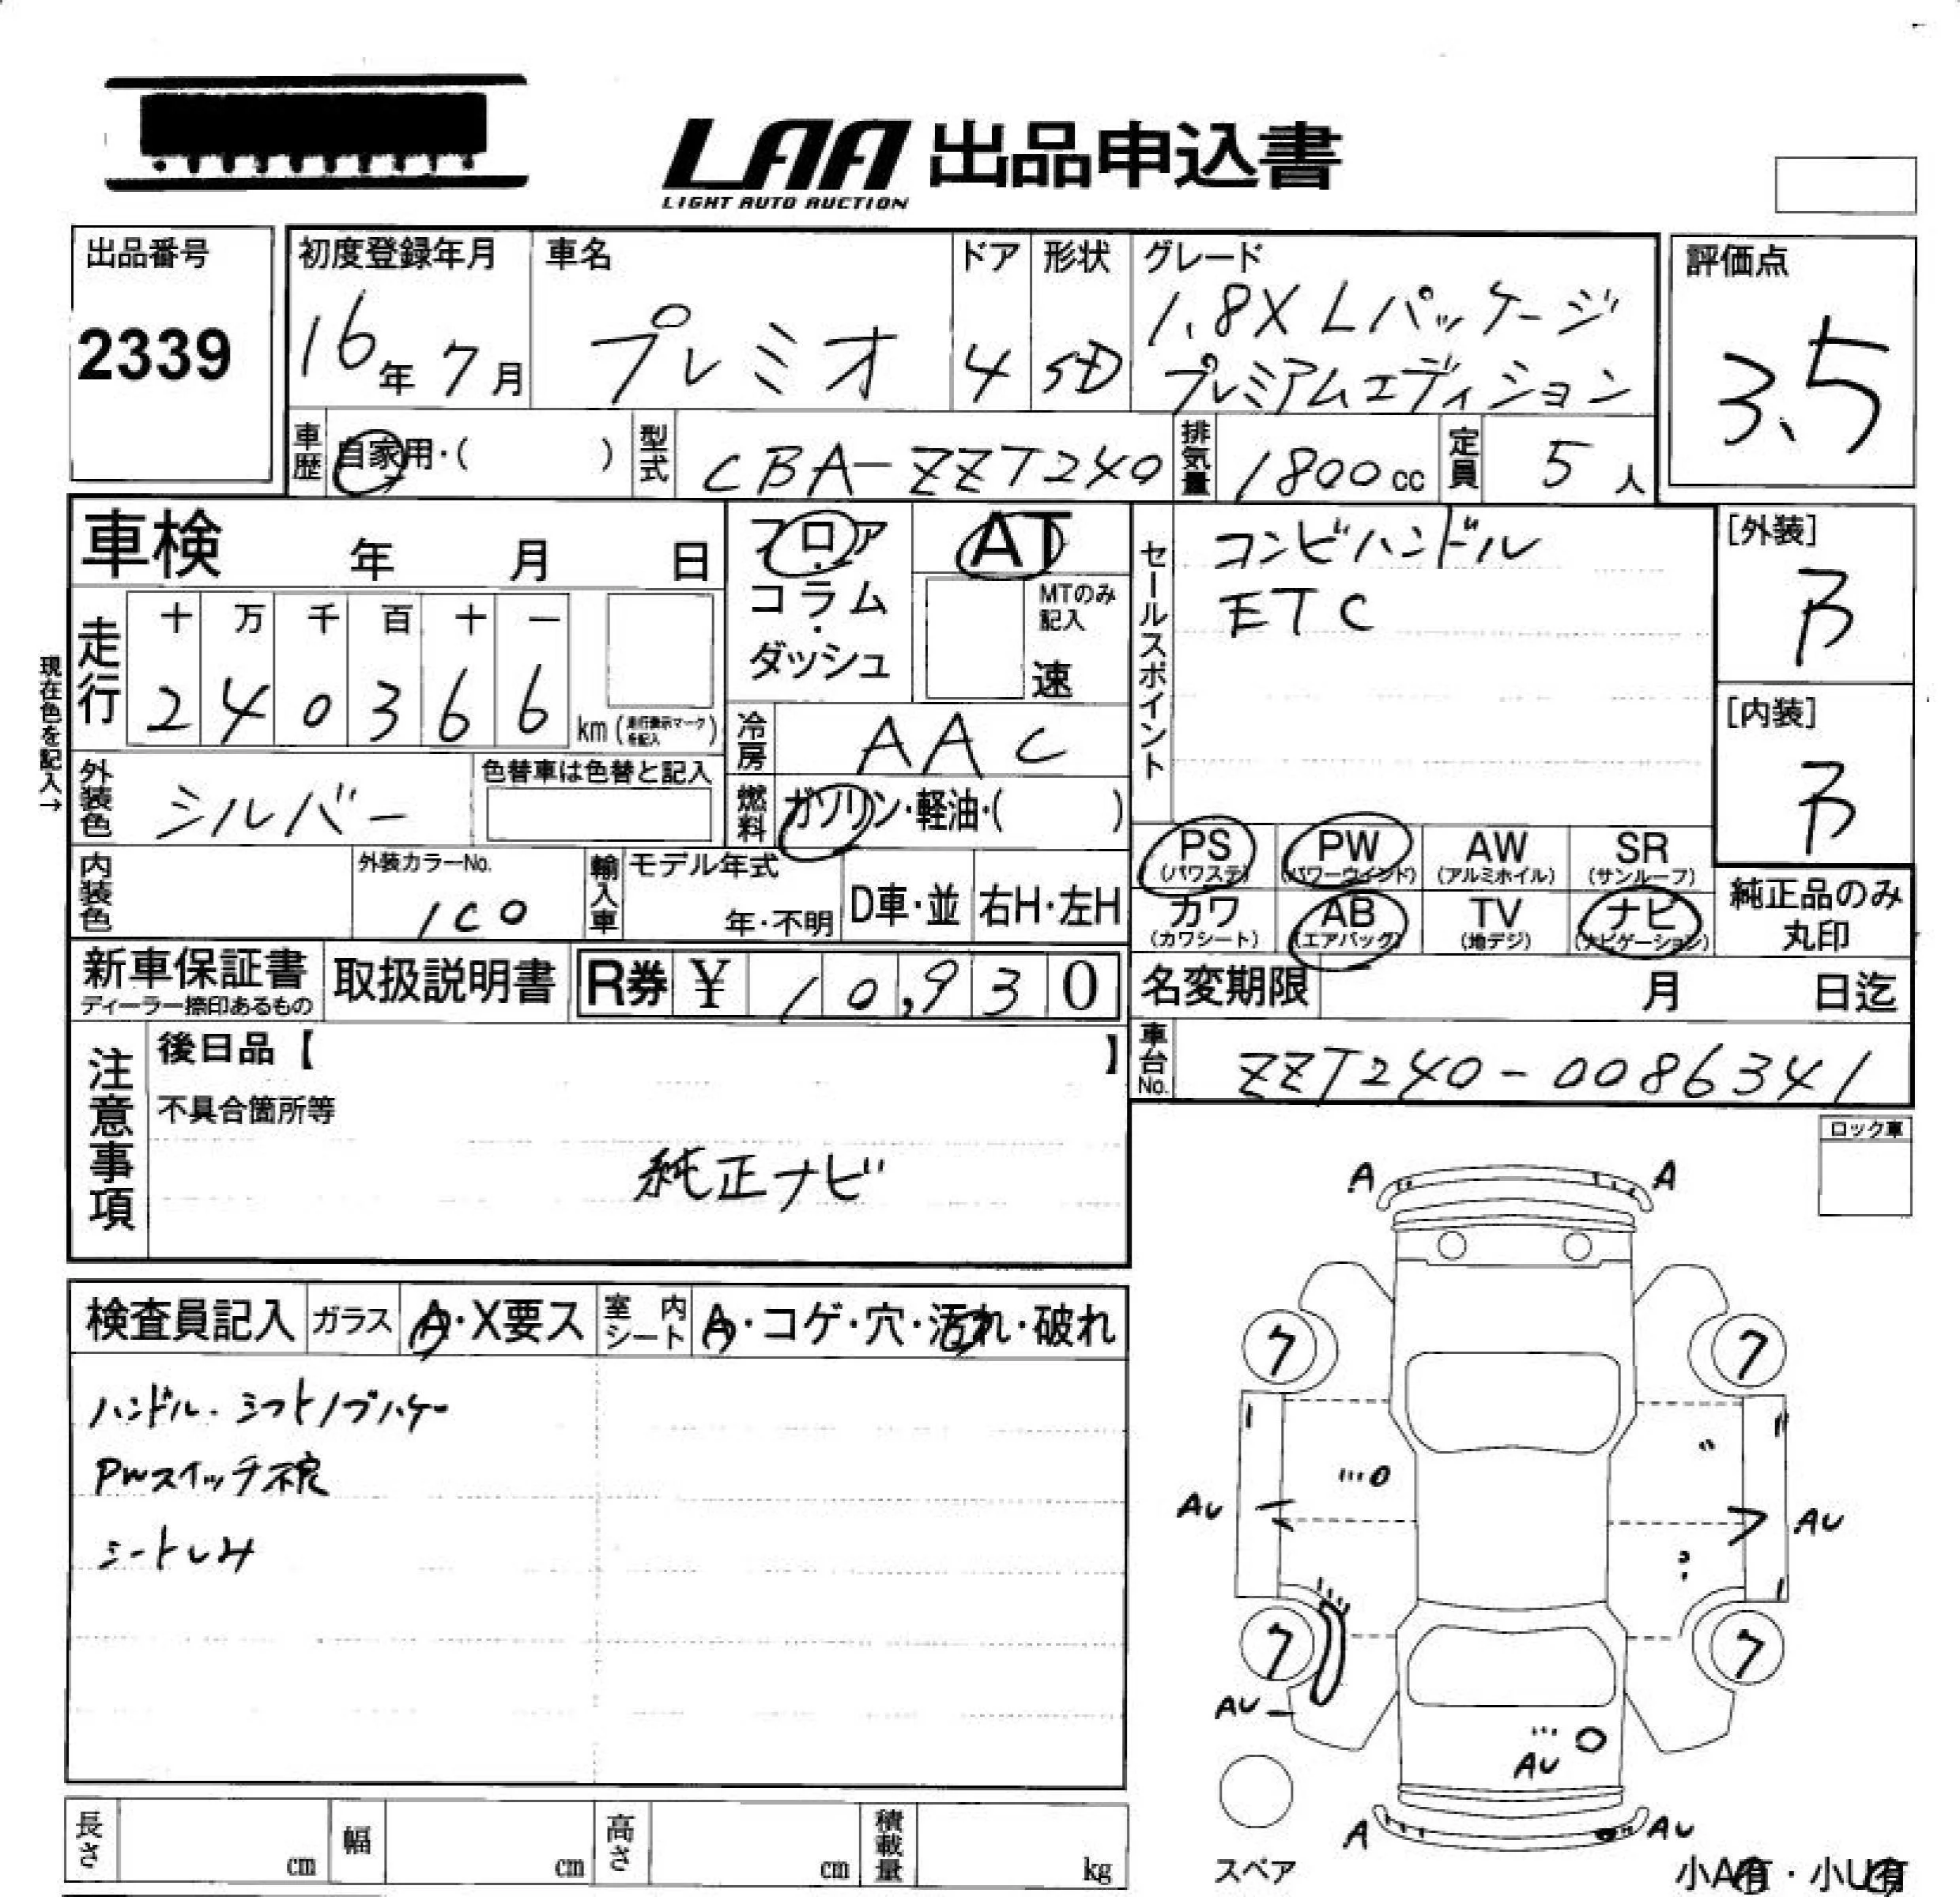 LAA 出品申込書
LIGHT AUTO AUCTION
出品番号
2339
初度登録年月
16年 7月
車名
プレミオ
ドア
4
形状
SD
グレード
1.8X Lパッケージ
プレミアムエディション
評価点
3.5
車歴
自家用・( )
型式
CBA-ZZT240
排気量
1800cc
定員
5人
車検 年 月 日
フロア・コラム・ダッシュ
AT
MTのみ記入
速
セールスポイント
コンビハンドル
ETC
[外装]
B
[内装]
B
現在色を記入→
走行
十 万 千 百 十 一
2 4 0 3 6 6
km (走行表示マークを記入)
冷房
AAC
外装色
シルバー
色替車は色替と記入
燃料
ガソリン・軽油・( )
PS
(パワステ)
PW
(パワーウインド)
AW
(アルミホイル)
SR
(サンルーフ)
カワ
(カワシート)
AB
(エアバッグ)
TV
(地デジ)
ナビ
(ナビゲーション)
純正品のみ
丸印
内装色
外装カラーNo.
1C0
輸入車
モデル年式
年・不明
D車・並
右H・左H
新車保証書
ディーラー捺印あるもの
取扱説明書
R券 ¥ 10,930
名変期限 月 日迄
車台No.
ZZT240-0086341
注意事項
後日品【 】
不具合箇所等
純正ナビ
ロック車
検査員記入
ガラス
A・X要ス
室内シート
A・コゲ・穴・汚れ・破れ
ハンドル・シフトノブハゲ
PWスイッチ不良
シートしみ
A A
7 7
AU AU
7 7
AU
AU
A AU
スペア
小A有・小U有
長さ cm
幅 cm
高さ cm
積載量 kg